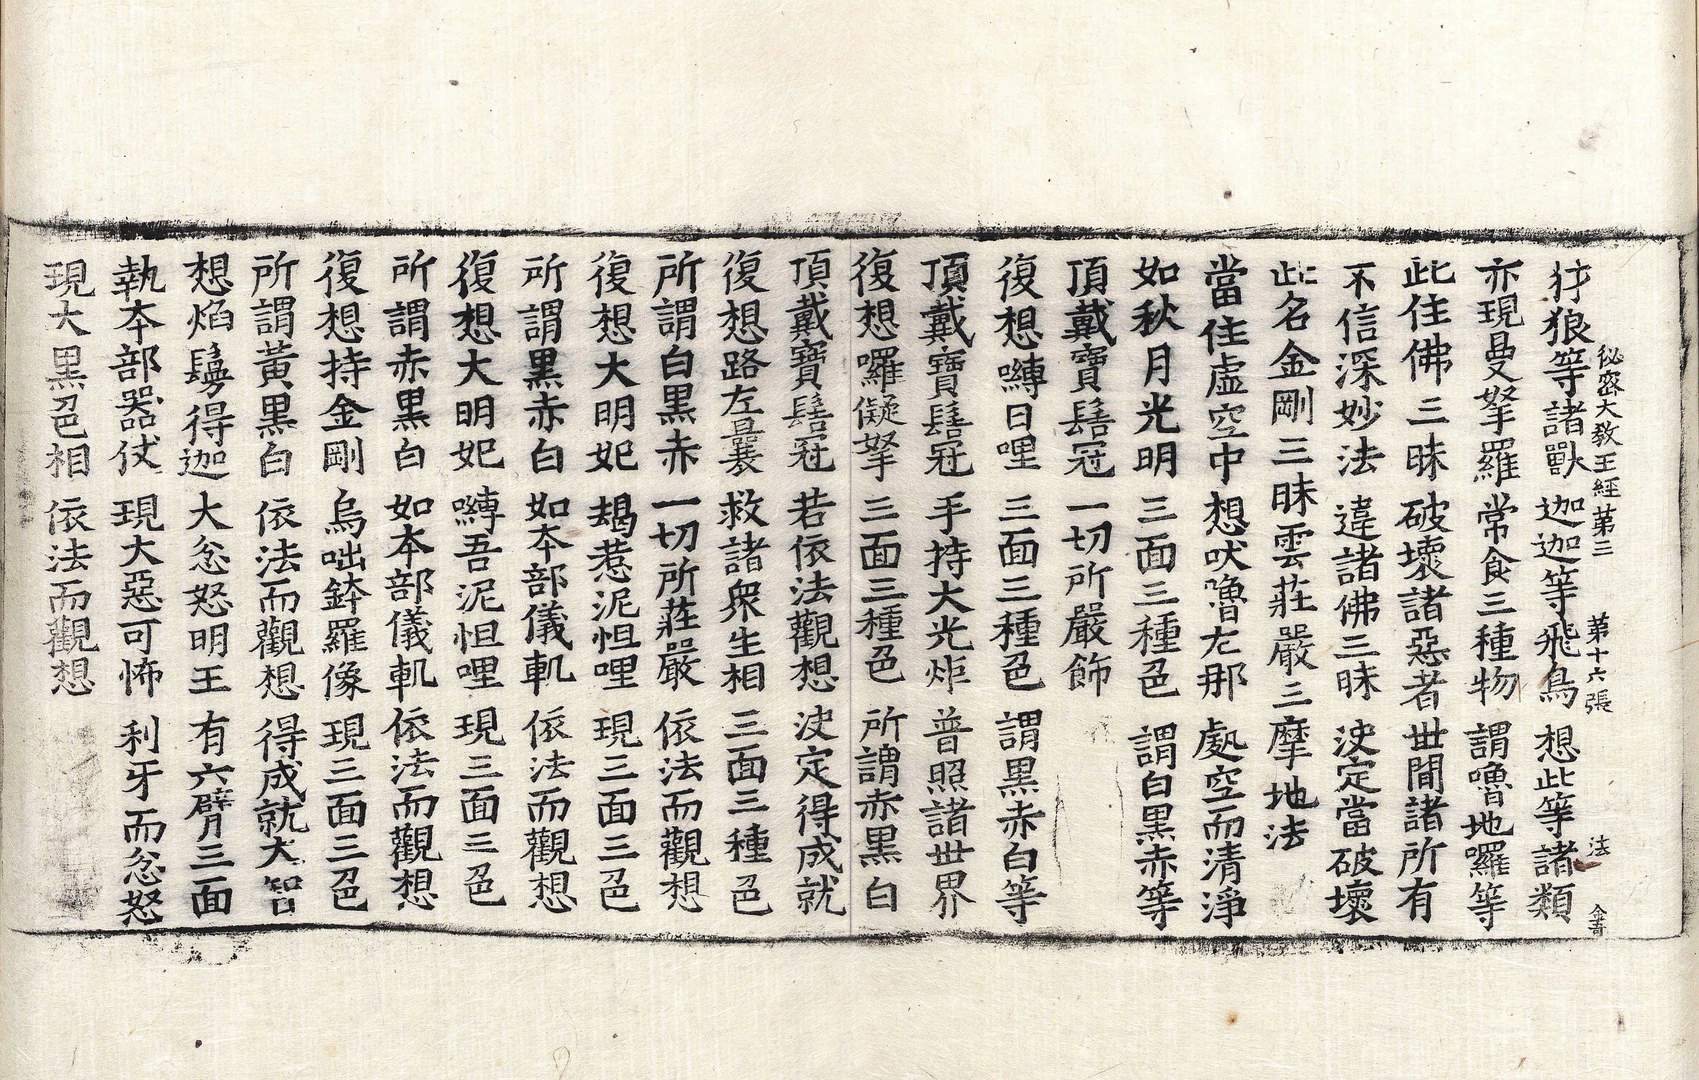 豺狼等諸獸 迦迦等飛鳥 想此等諸類
秘密大教王經第三 第十六張 法 金奇
亦現曼拏羅 常食三種物 謂嚕地羅等
此住佛三昧 破壞諸惡者 世間諸所有
不信深妙法 違諸佛三昧 決定當破壞
此名金剛三昧雲莊嚴三摩地法
當住虛空中 想吠嚕左那 處空而清淨
如秋月光明 三面三種色 謂白黑赤等
頂戴寶髻冠 一切所嚴飾
復想嚩日哩 三面三種色 謂黑赤白等
頂戴寶髻冠 手持大光炬 普照諸世界
復想囉儗拏 三面三種色 所謂赤黑白
頂戴寶髻冠 若依法觀想 決定得成就
復想路左曩 救諸眾生相 三面三種色
所謂白黑赤 一切所莊嚴 依法而觀想
復想大明妃 朅惹泥怛哩 現三面三色
所謂黑赤白 如本部儀軌 依法而觀想
復想大明妃 嚩吾泥怛哩 現三面三色
所謂赤黑白 如本部儀軌 依法而觀想
復想持金剛 烏咄鉢羅像 現三面三色
所謂黃黑白 依法而觀想 得成就大智
想焰鬘得迦 大忿怒明王 有六臂三面
執本部器仗 現大惡可怖 利牙而忿怒
現大黑色相 依法而觀想